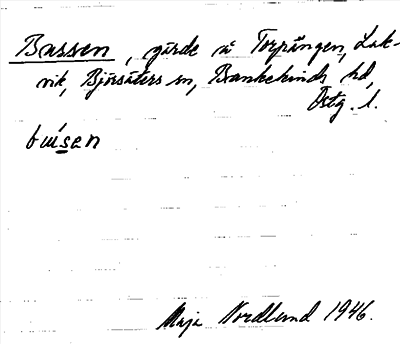 Bassen, gärde å Torpängen, Lak-
vik, Björsäters sn, Bankekinds hd,
Östg. l.
Maja Nordlund 1946.